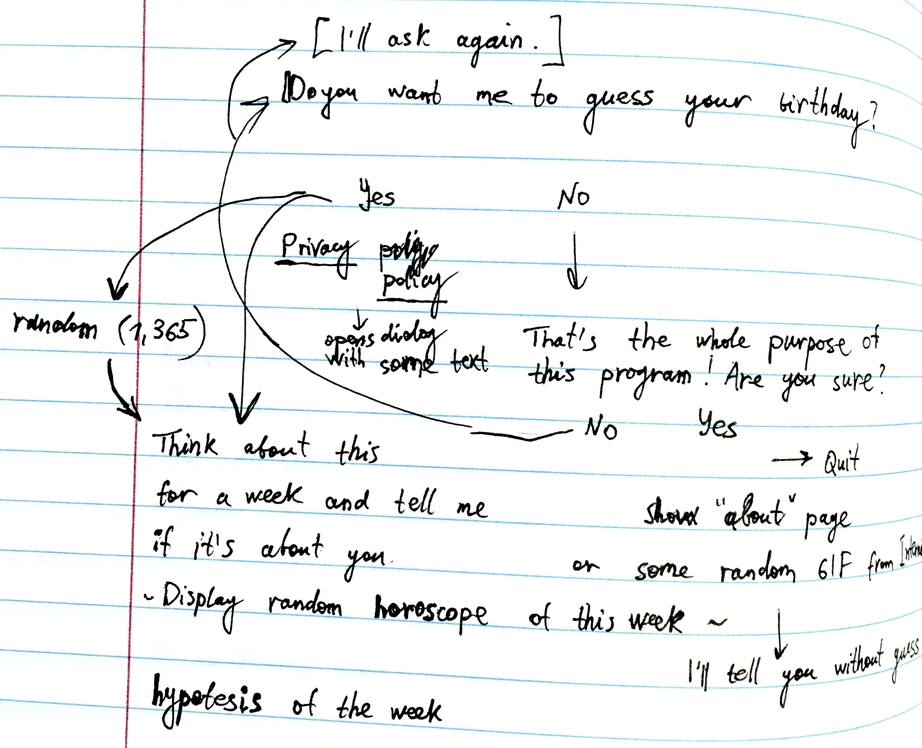 [I'll ask again.]
Do you want me to guess your birthday?
Yes No
Privacy
policy
random (1,365)
opens dialog
with some text
That's the whole purpose of
this program! Are you sure?
No Yes
→ Quit
Think about this
for a week and tell me
if it's about you.
show "about" page
or some random GIF from
~ Display random horoscope of this week ~
I'll tell you without guess
hypotesis of the week